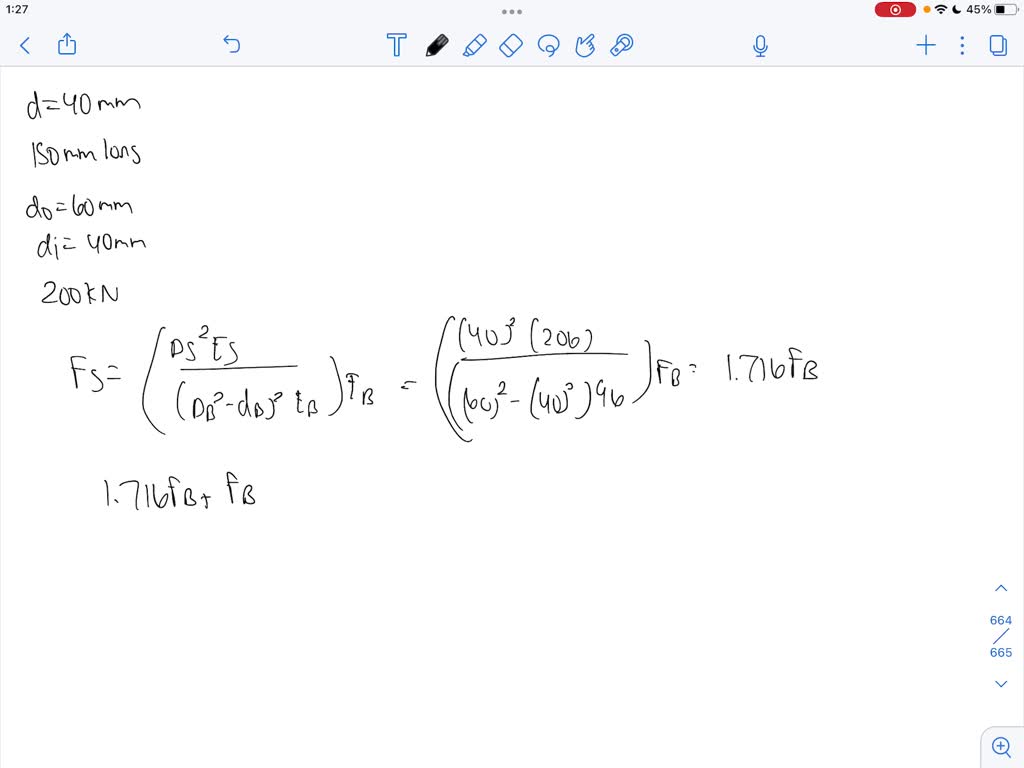 1:27
45%
d=40mm
150mm long
do=60mm
di=40mm
200kN
Fs= (Ds²Es / (DB²-dB)² EB) FB = ((40)² (206) / ((60)² - (40)²) 96) FB = 1.716FB
1.716FB + FB
664
665